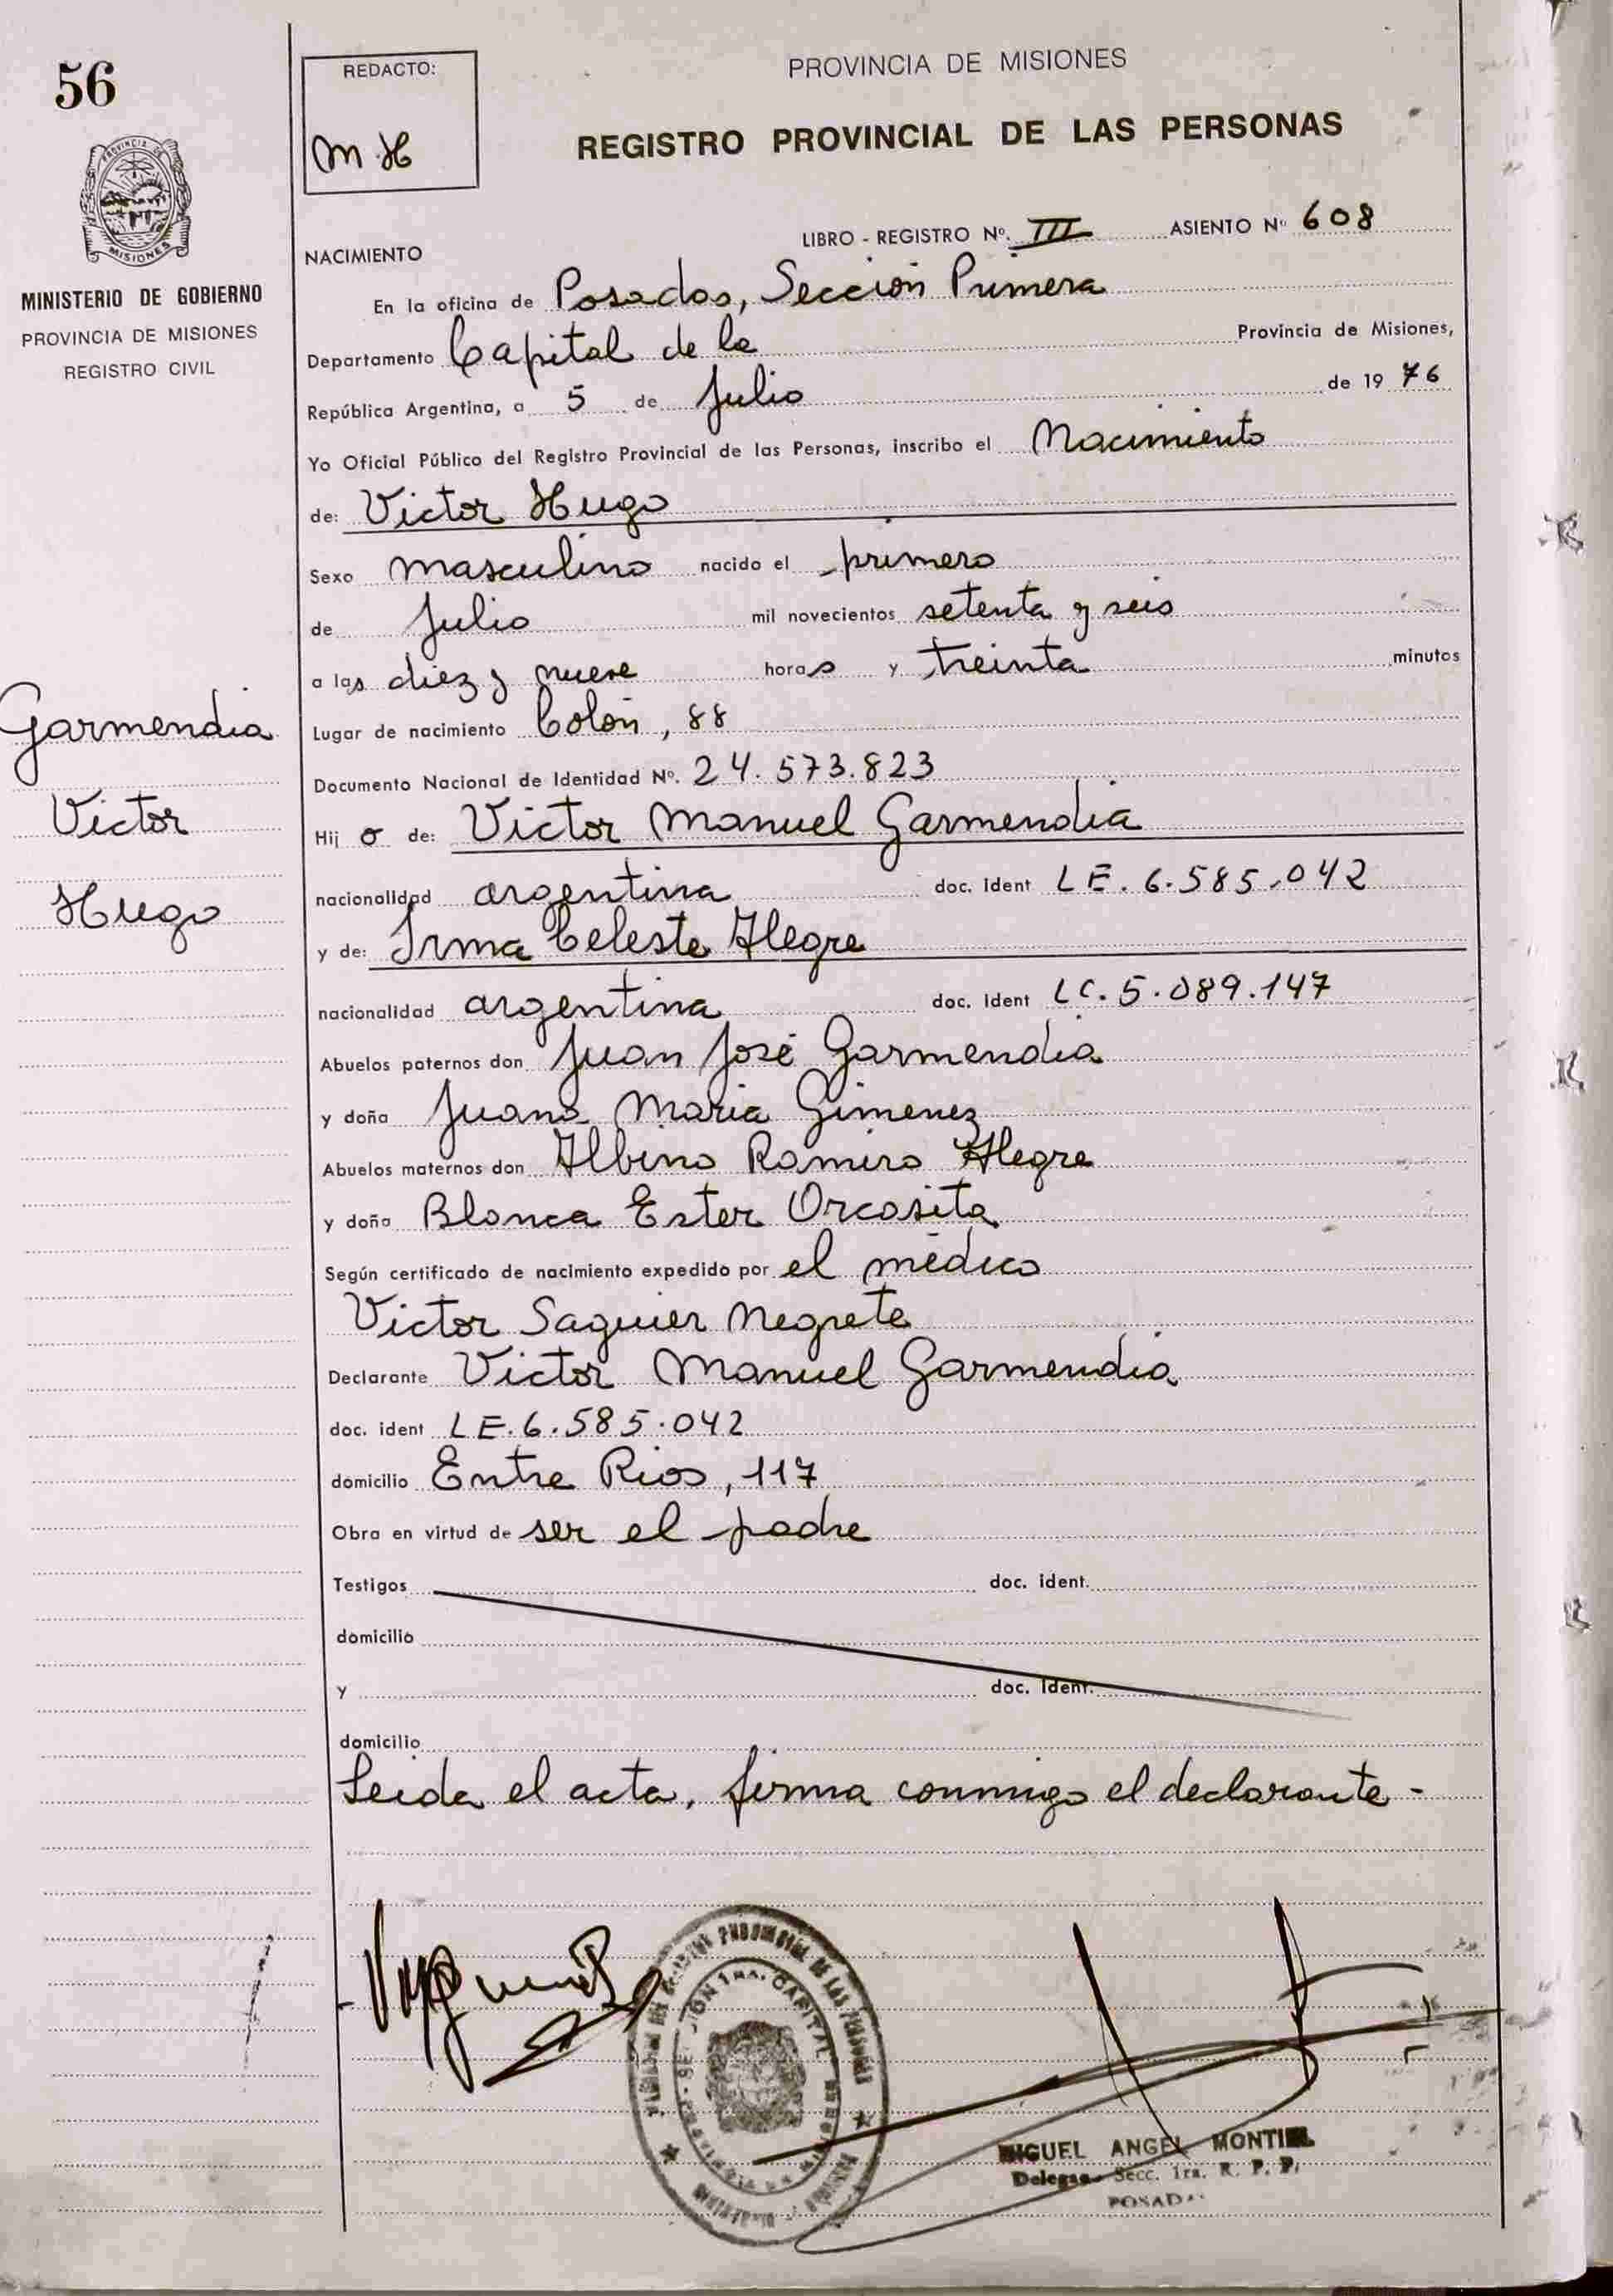 56
REDACTO:
M.H
PROVINCIA DE MISIONES
REGISTRO PROVINCIAL DE LAS PERSONAS
PROVINCIA DE
MISIONES
MINISTERIO DE GOBIERNO
PROVINCIA DE MISIONES
REGISTRO CIVIL
LIBRO - REGISTRO Nº. III ASIENTO Nº 608
NACIMIENTO
En la oficina de Posadas, Sección Primera
Departamento Capital de la Provincia de Misiones,
República Argentina, a 5 de Julio de 1976
Yo Oficial Público del Registro Provincial de las Personas, inscribo el Nacimiento
de: Victor Hugo
Sexo masculino nacido el primero
de Julio mil novecientos setenta y seis
a las diez y nueve horas y treinta minutos
Lugar de nacimiento Colón, 88
Documento Nacional de Identidad Nº. 24.573.823
Hijo de: Victor Manuel Garmendia
nacionalidad argentina doc. Ident LE. 6.585.042
y de: Irma Celeste Alegre
nacionalidad argentina doc. Ident LC. 5.089.147
Abuelos paternos don Juan José Garmendia
y doña Juana Maria Gimenez
Abuelos maternos don Albino Ramiro Alegre
y doña Blanca Ester Orcosita
Según certificado de nacimiento expedido por el médico
Victor Saguier Negrete
Declarante Victor Manuel Garmendia
doc. ident LE. 6.585.042
domicilio Entre Rios, 117
Obra en virtud de ser el padre
Testigos doc. ident.
domicilio
y doc. Ident.
domicilio
Leida el acta, firma conmigo el declarante -
Garmendia
Victor
Hugo
PROVINCIAL DE LAS PERSONAS
1ra. CAPITAL
MIGUEL ANGEL MONTIEL
Secc. 1ra. R. P. P.
POSADAS